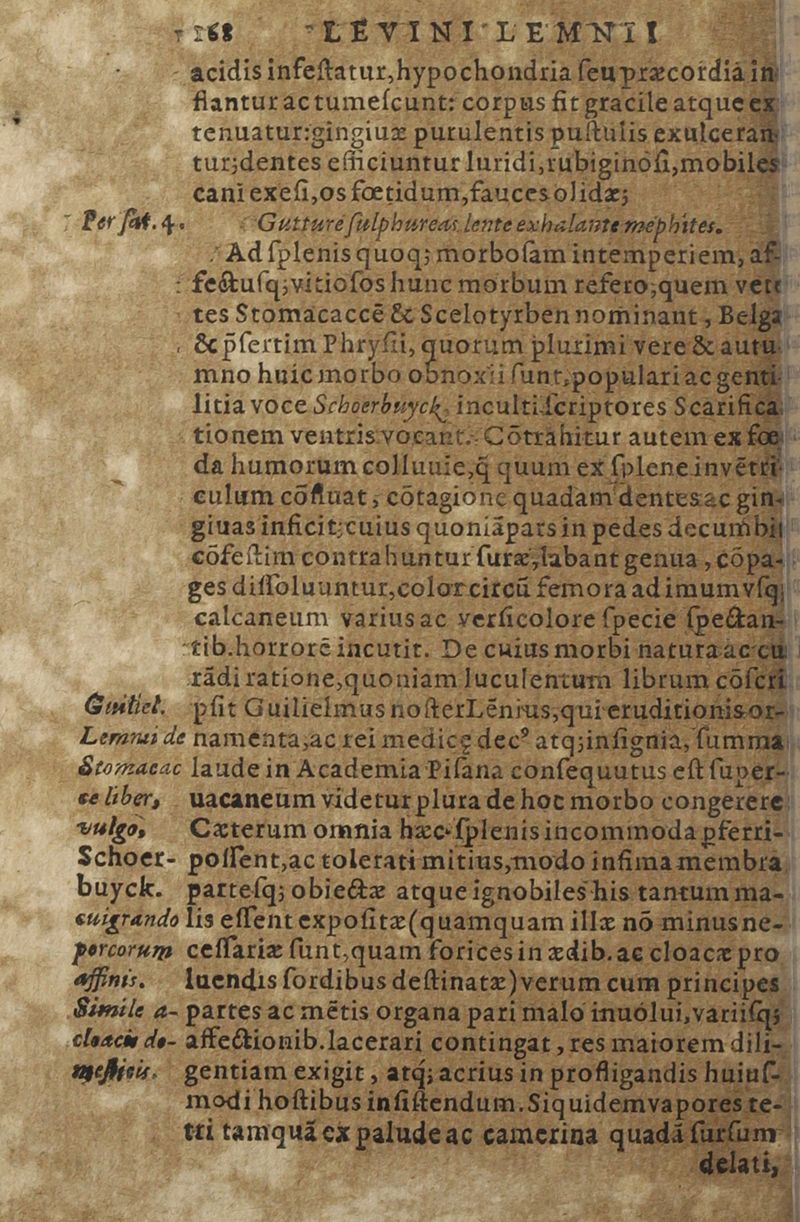 168 LEVINI LEMNII
acidis infeſtatur, hypochondria ſeu præcordia in
flantur ac tumeſcunt: corpus fit gracile atque ex
tenuatur: gingiuæ purulentis puſtulis exulceran
tur; dentes efficiuntur luridi, rubiginoſi, mobiles
cani exeſi, os fœtidum, fauces olidæ;
Per ſat. 4. Gutture ſulphureas lente exhalante mephites.
Ad ſplenis quoq; morboſam intemperiem, af-
fectuſq; vitioſos hunc morbum refero; quem vete
tes Stomacaccē & Scelotyrben nominant, Belgæ
& p̄ſertim Phryſii, quorum plurimi vere & autu-
mno huic morbo obnoxii ſunt, populari ac genti-
litia voce Schoerbuyck, inculti ſcriptores Scarifica-
tionem ventris vocant. Cōtrahitur autem ex fœ
da humorum colluuie, q̄ quum ex ſplene in vētri
culum cōfluat, cōtagione quadam dentes ac gin-
giuas inficit; cuius quoniā pars in pedes decumbit
cōfeſtim contrahuntur ſuræ, labant genua, cōpa-
ges diſſoluuntur, color circū femora ad imum vſq;
calcaneum varius ac verſicolore ſpecie ſpectan-
tib. horrorē incutit. De cuius morbi natura ac cu
rādi ratione, quoniam luculentum librum cōſcri
Guiliel. pſit Guilielmus noſter Lēnius, qui eruditionis or-
Lemnii de namenta, ac rei medicę decꝰ atq; inſignia, ſumma
Stomacac laude in Academia Piſana conſequutus eſt ſuper-
ce liber, uacaneum videtur plura de hoc morbo congerere
vulgo, Cæterum omnia hæc ſplenis incommoda pferri-
Schoer- poſſent, ac tolerati mitius, modo infima membra,
buyck. parteſq; obiectæ atque ignobiles his tantum ma-
cui grando lis eſſent expoſitæ (quamquam illæ nō minus ne-
porcorum ceſſariæ ſunt, quam forices in ædib. ac cloacæ pro
affinis. luendis ſordibus deſtinatæ) verum cum principes
Simile a- partes ac mētis organa pari malo inuolui, variiſq;
cloacis do- affectionib. lacerari contingat, res maiorem dili-
meſticis. gentiam exigit, atq; acrius in profligandis huiuſ-
modi hoſtibus inſiſtendum. Siquidem vapores te-
tri tamquā ex palude ac camerina quadā ſurſum
delati,